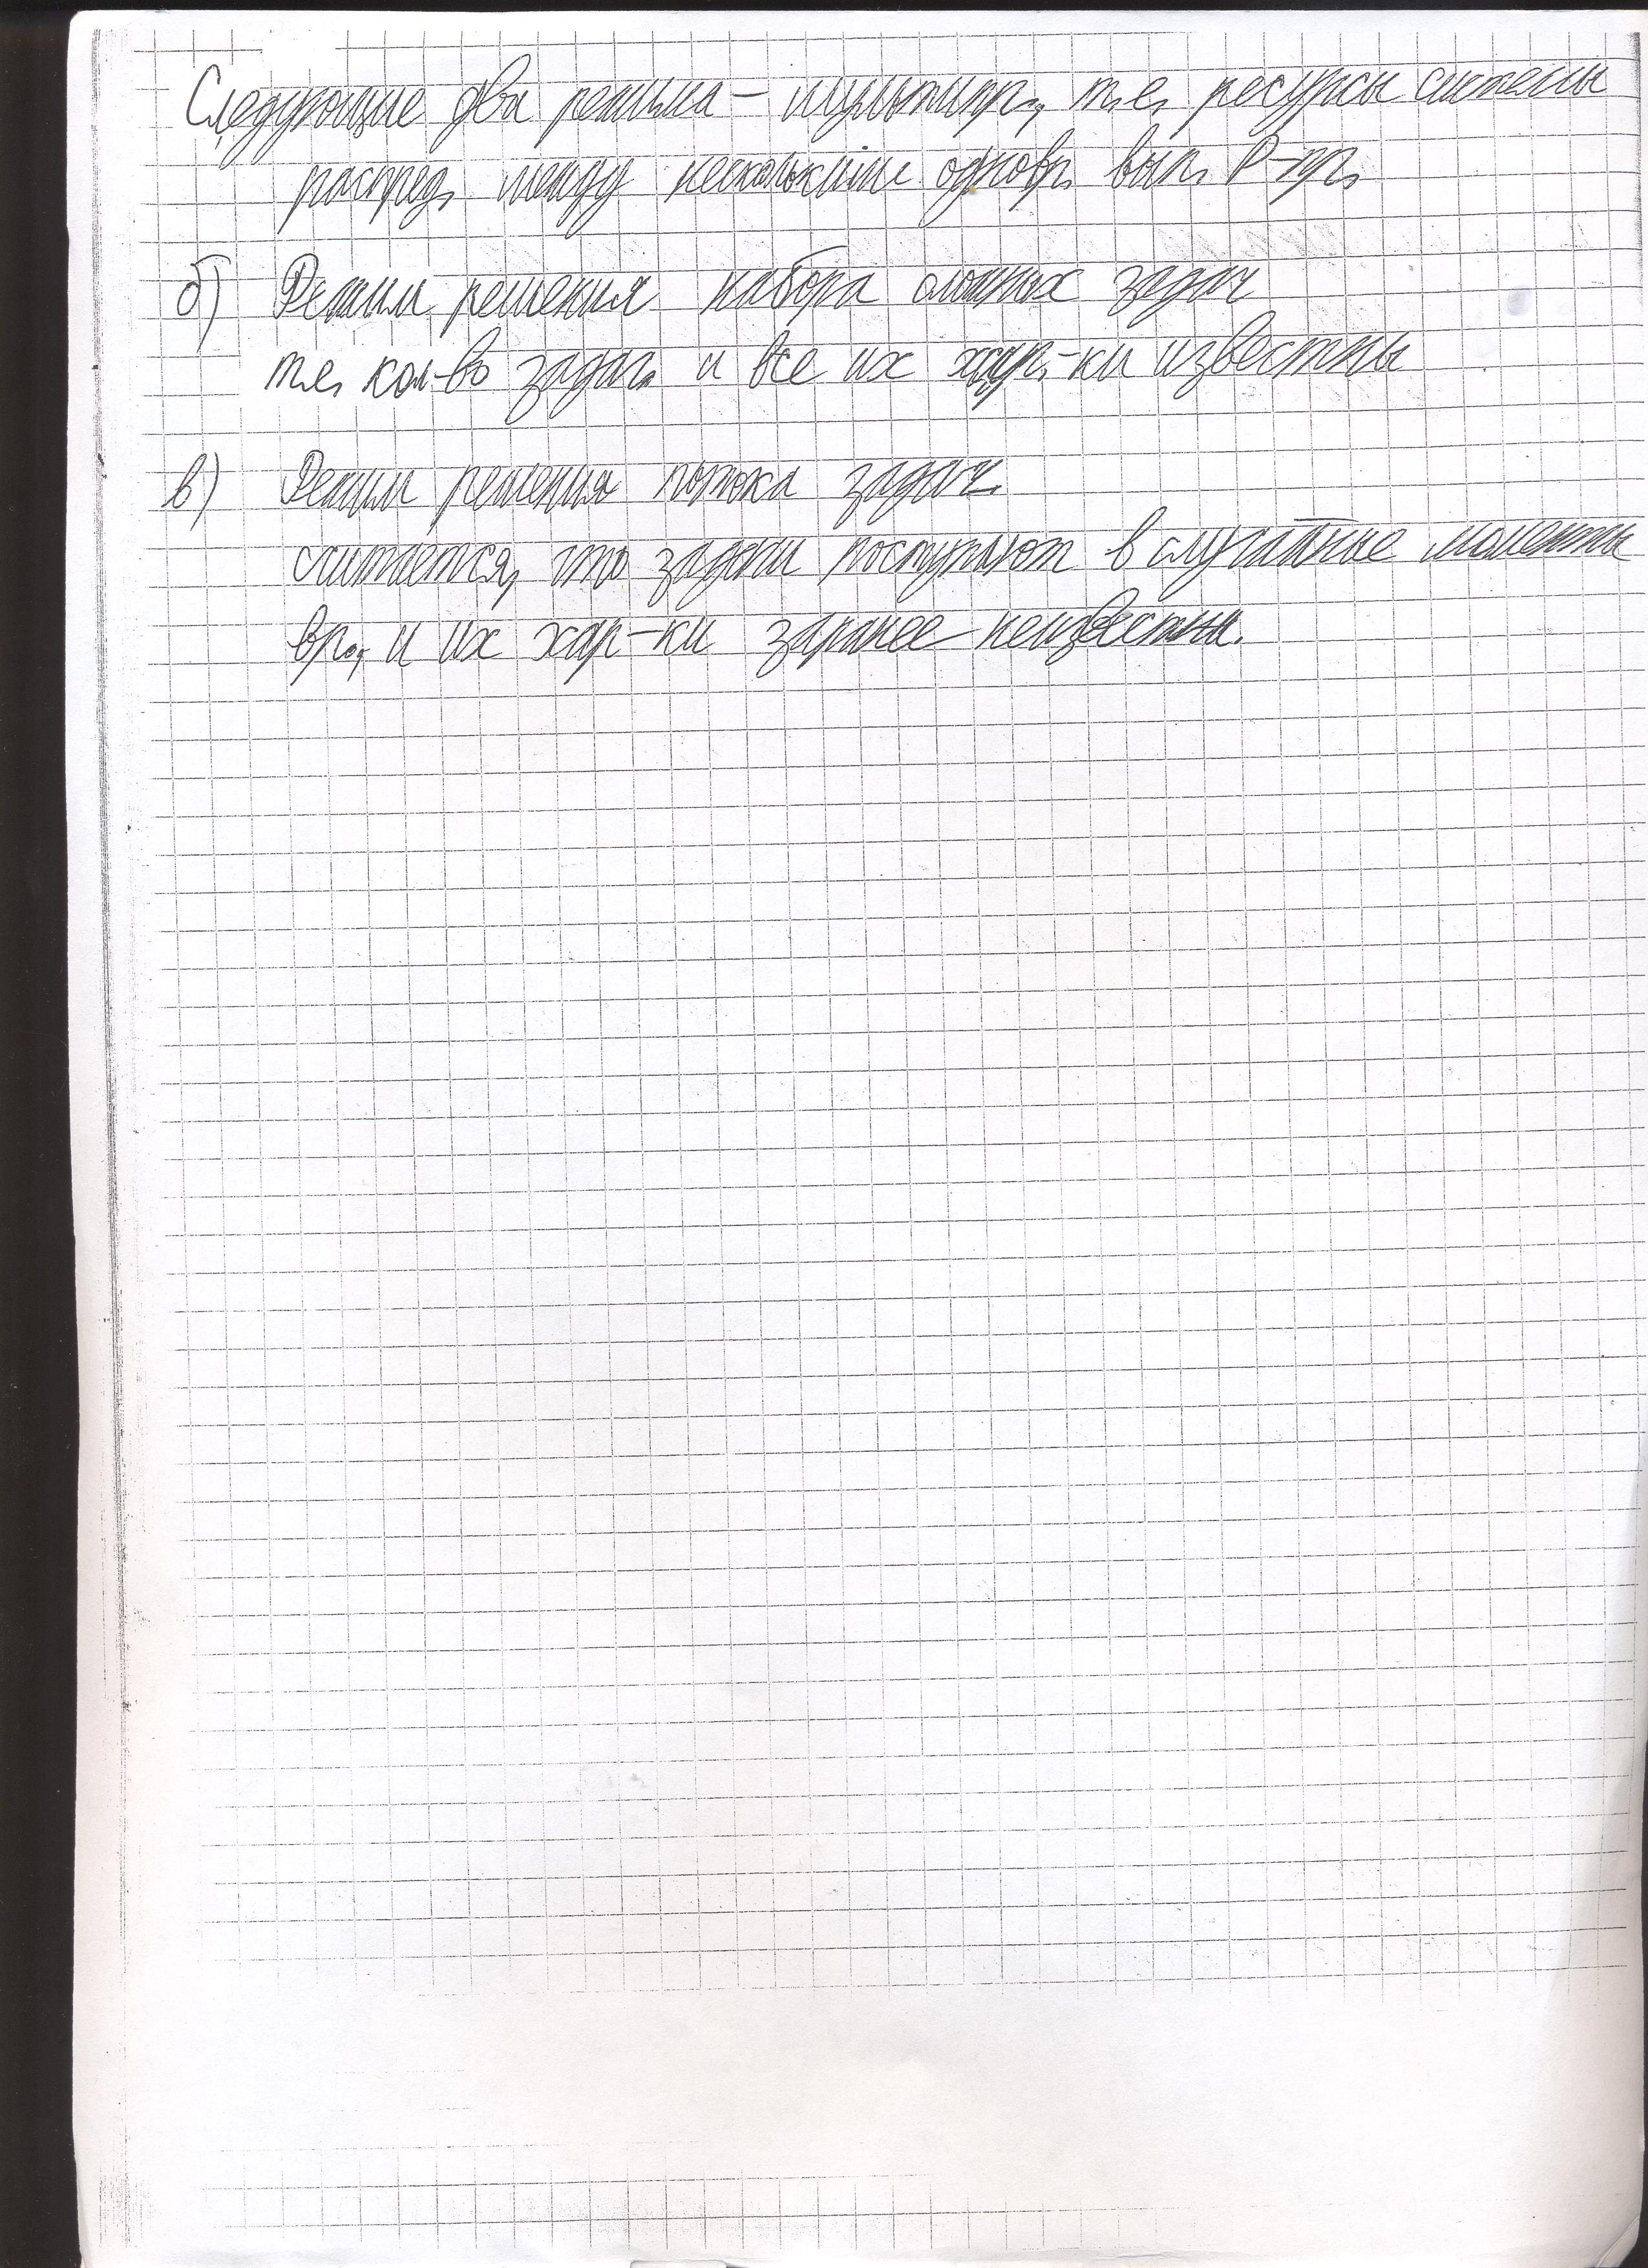 Следующие два режима – мультипр., т.е. ресурсы системы
распред. между несколькими одновр. вып. P-пр.
б) Режим решения набора сложных задач
т.е. кол-во задач и все их хар-ки известны
в) Режим решения потока задач.
считается, что задачи поступают в случайные моменты
вр., и их хар-ки заранее неизвестны.